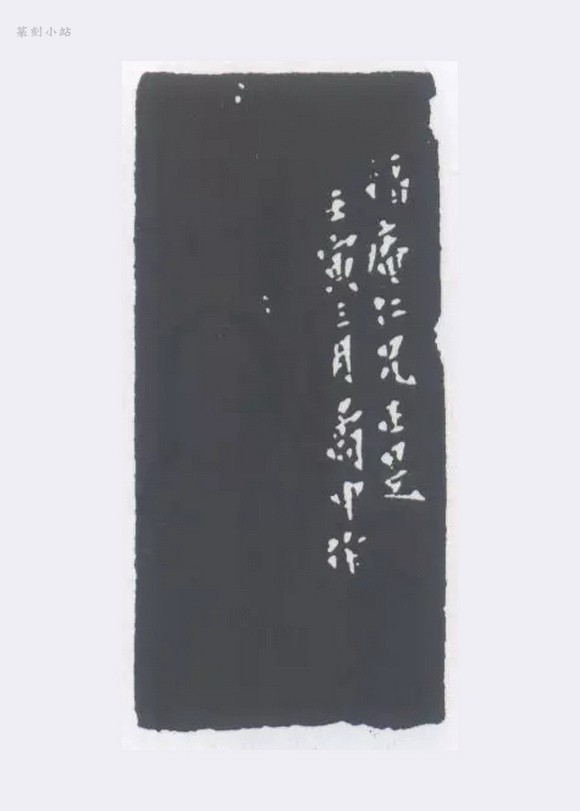 篆刻小站
福庵仁兄正是
壬寅三月中作